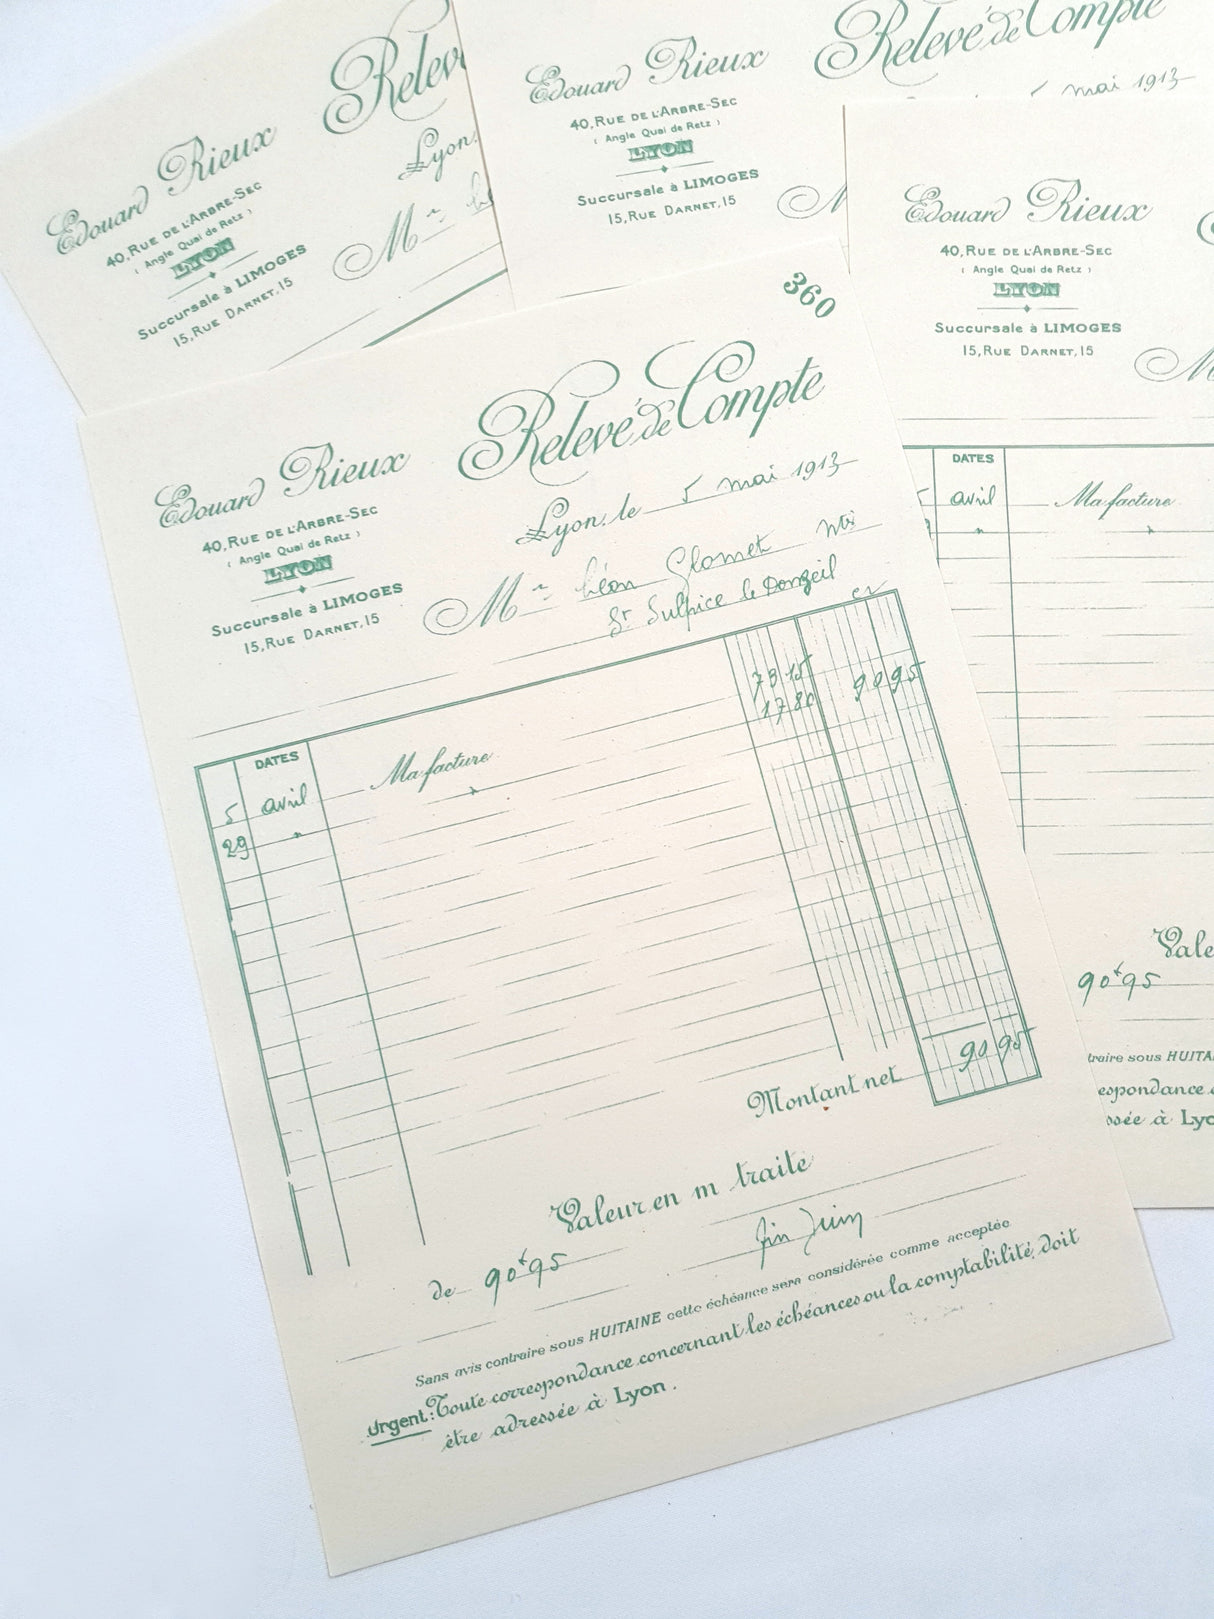 Edouard Rieux
40, Rue de l'Arbre-Sec
( Angle Quai de Retz )
LYON
Succursale à LIMOGES
15, Rue Darnet, 15
Relevé
Lyon.
Mr
Edouard Rieux
40, Rue de l'Arbre-Sec
( Angle Quai de Retz )
LYON
Succursale à LIMOGES
15, Rue Darnet, 15
Relevé de Compte
5 mai 1913
M
Edouard Rieux
40, Rue de l'Arbre-Sec
( Angle Quai de Retz )
LYON
Succursale à LIMOGES
15, Rue Darnet, 15
DATES
5 avril Ma facture
"
Vale
90f95
traire sous HUITA
espondance
ssée à Lyo
360
Relevé de Compte
Edouard Rieux
40, Rue de l'Arbre-Sec
( Angle Quai de Retz )
LYON
Succursale à LIMOGES
15, Rue Darnet, 15
Lyon, le 5 mai 1913
Mr Léon Glomet
St Sulpice le Donzeil
DATES
5 avril Ma facture 73 15 90 95
29 " " 17 80
Montant net 90 95
Valeur en m traite
de 90f95 fin Juin
Sans avis contraire sous HUITAINE cette échéance sera considérée comme acceptée
Urgent: Toute correspondance concernant les échéances ou la comptabilité, doit
être adressée à Lyon.